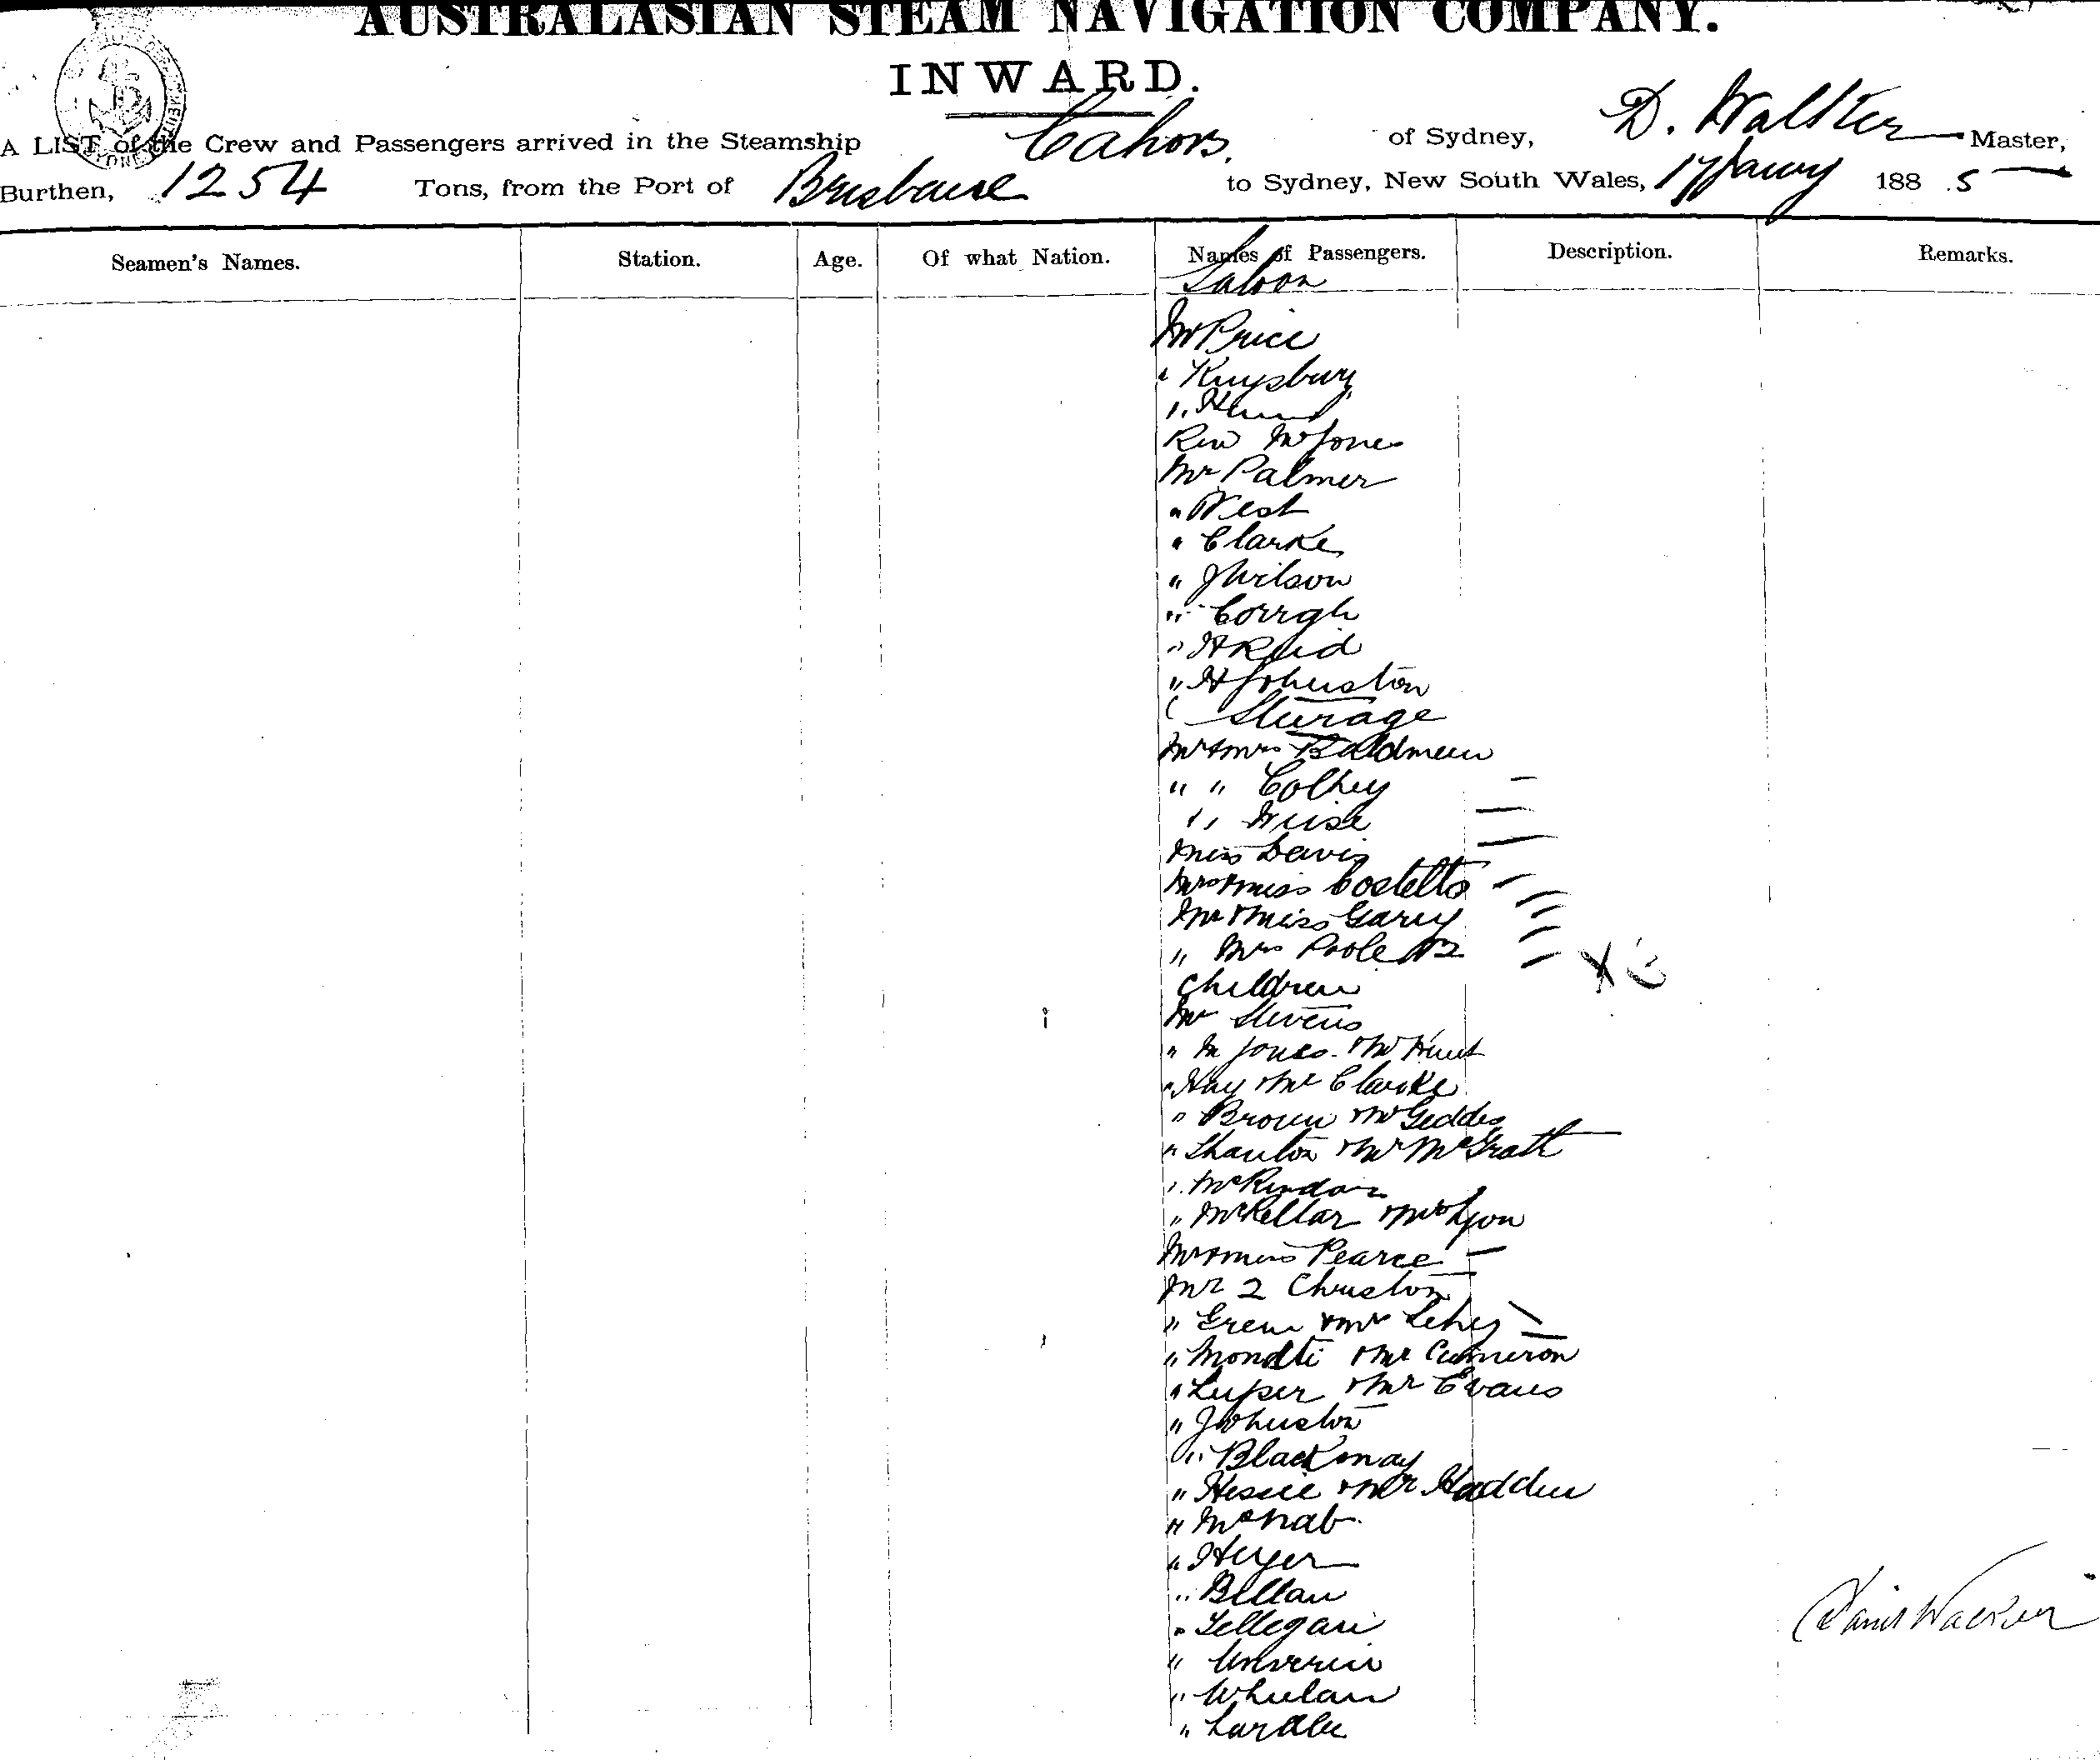 AUSTRALASIAN STEAM NAVIGATION COMPANY.
INWARD.
A LIST of the Crew and Passengers arrived in the Steamship Cahors. of Sydney, D. Walker Master,
Burthen, 1254 Tons, from the Port of Brisbane to Sydney, New South Wales, 17 Jany 188 5
Seamen's Names. Station. Age. Of what Nation. Names of Passengers. Description. Remarks.
Saloon
Mr Price
" Kingsbury
"
Rev Mr Jones
Mr Palmer
" West
" Clarke
" J Wilson
" Corrgh
" A Reid
" A Johnston
Steerage
Mr & Mrs
" " Colhey
" " Wise
Miss Davis
Mrs & Miss Costello
Mr & Miss Garry
" Mrs Poole & 2
Children
Mr Stevens
" M Jones & Mr Hunt
" Hay & Mr Clarke
" Brown & Mr Geddes
" & Mr McGrath
"
" McKellar & Mr Lyon
Mr & Miss Pearce
Mr 2
" Green & Mr
" & Mr Cameron
" & Mr Evans
" Johnston
" Blackmay
" & Mr Hadden
" McNab
" Heyer
" Bellan
"
"
" Whelan
"